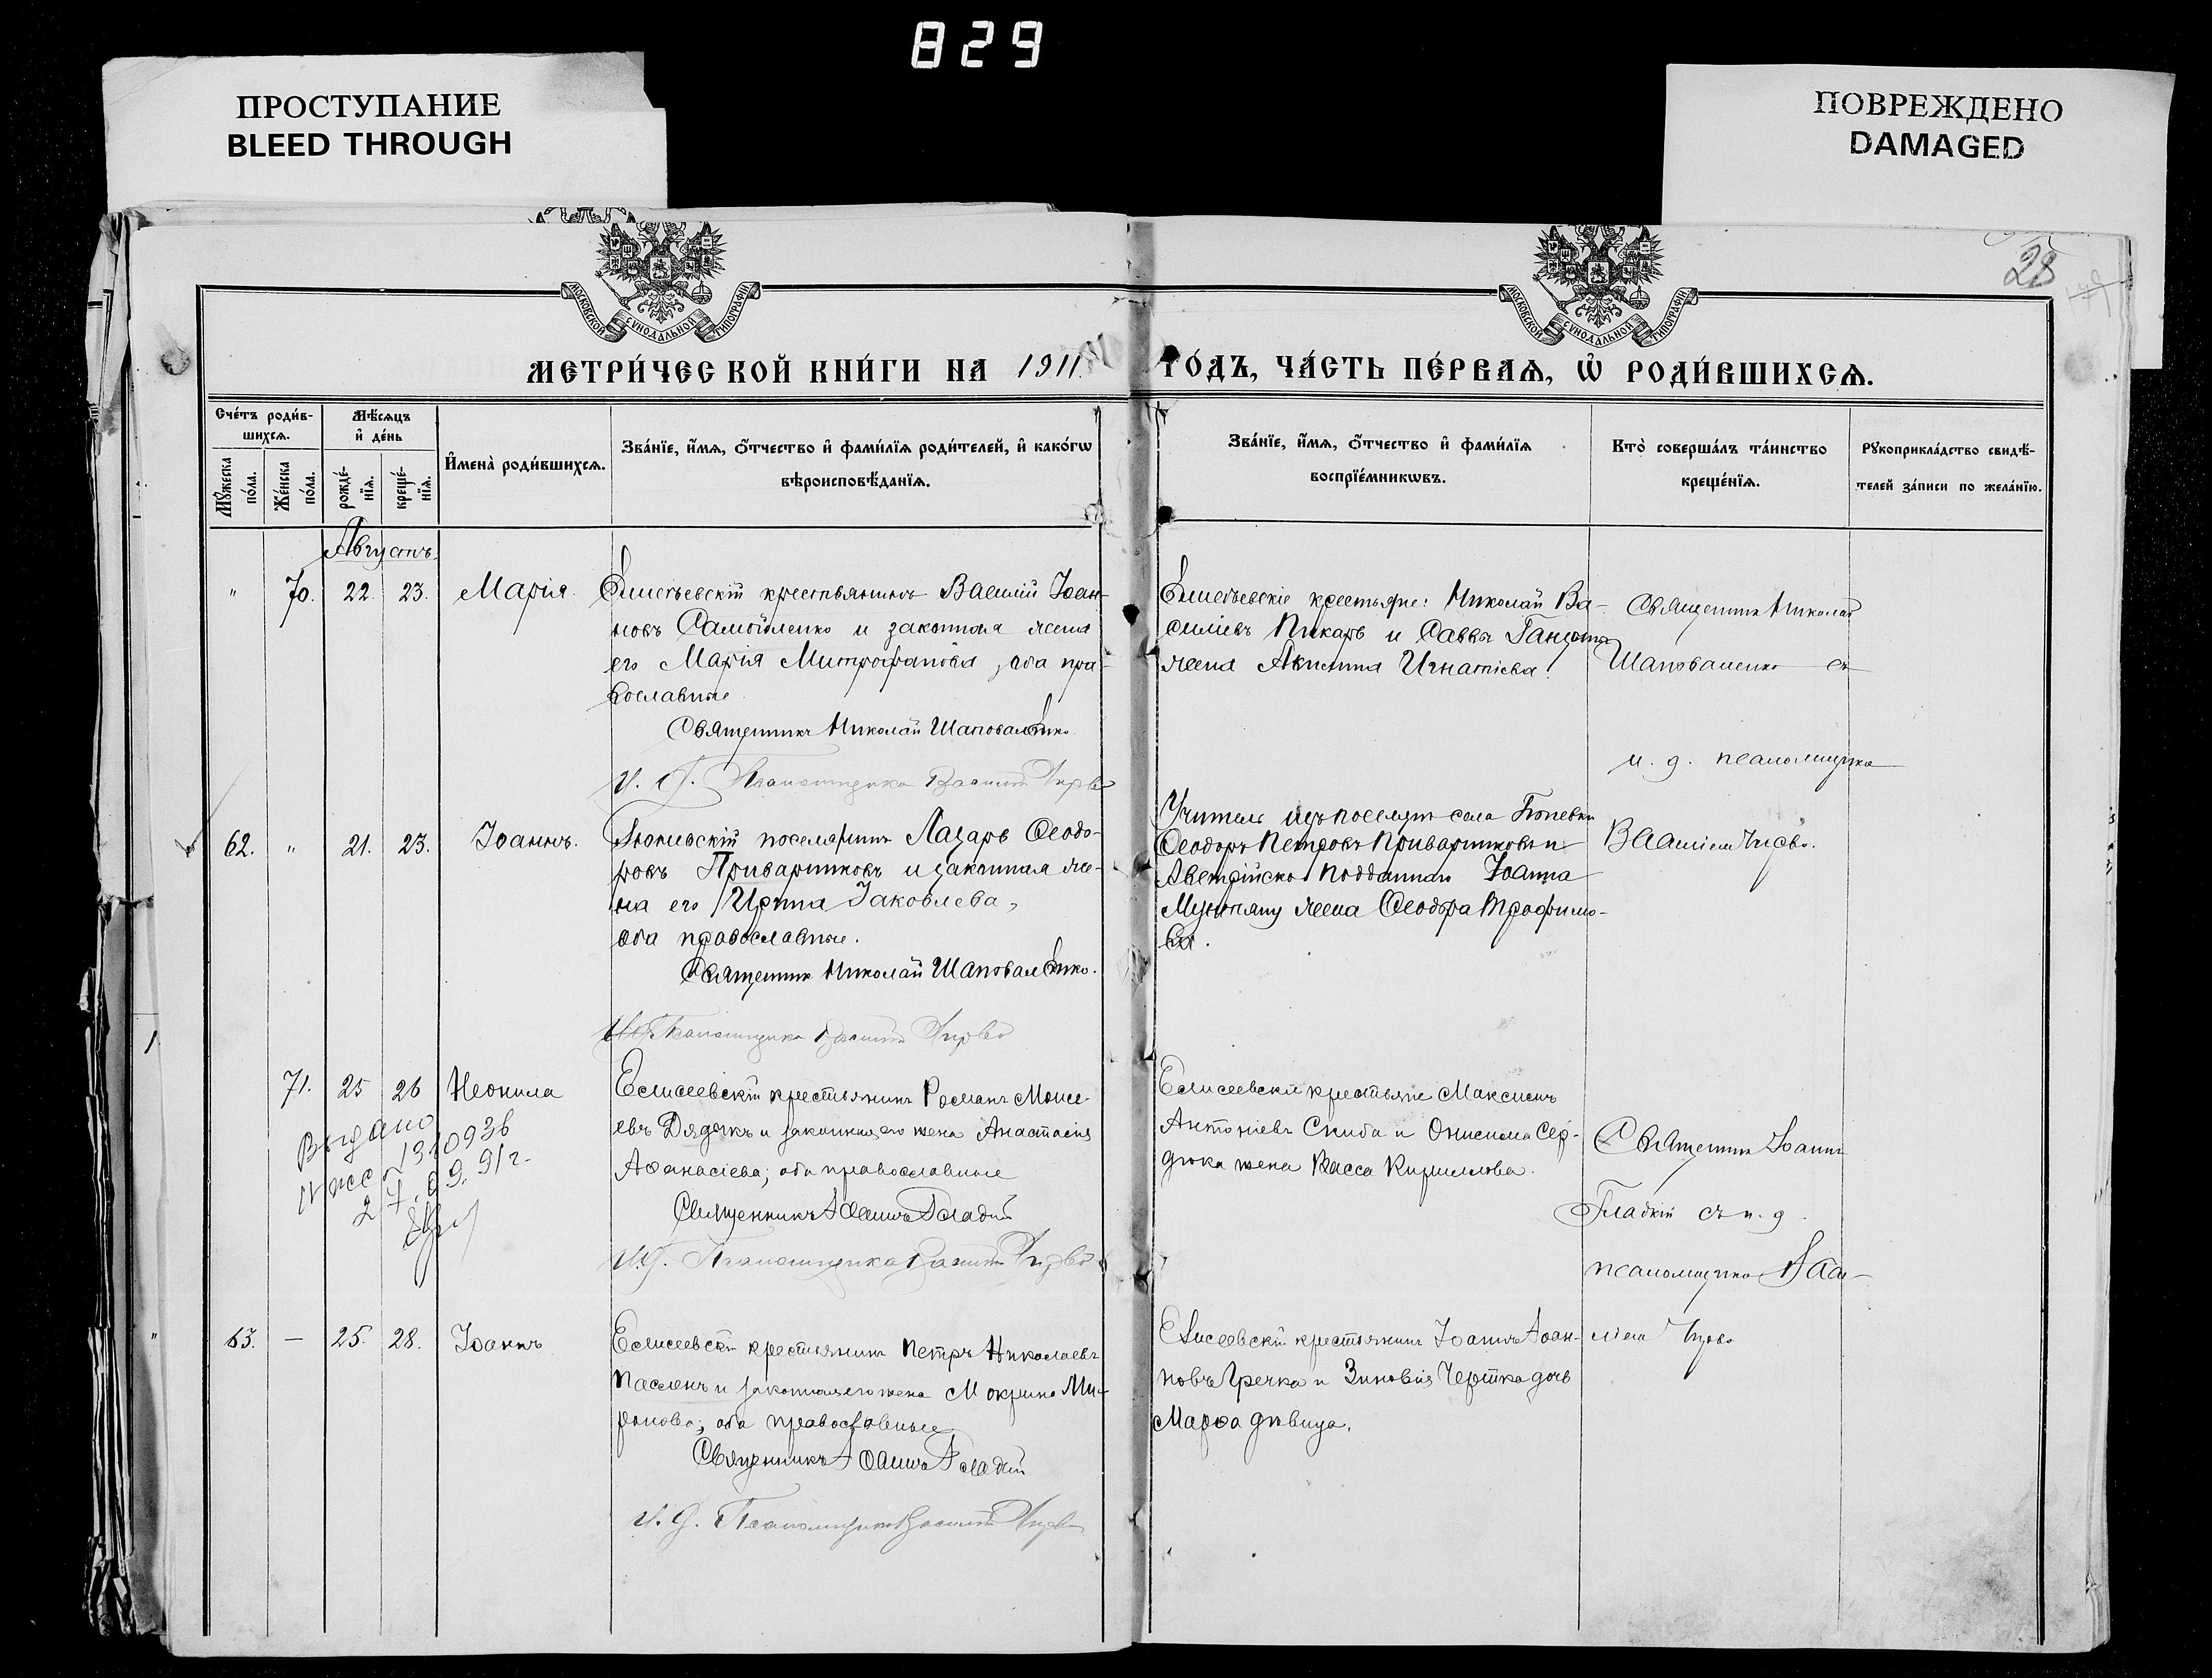 829
ПРОСТУПАНИЕ
BLEED THROUGH
ПОВРЕЖДЕНО
DAMAGED
28
МОСКОВСКОЙ СѴНОДАЛЬНОЙ ТИПОГРАФІИ
МОСКОВСКОЙ СѴНОДАЛЬНОЙ ТИПОГРАФІИ
МЕТРИ́ЧЕСКОЙ КНИ́ГИ НА 1911 ГО́ДЪ, ЧА́СТЬ ПЕ́РВАѦ, Ѡ҆ РОДИ́ВШИХСѦ.
Сче́тъ роди́в-
шихсѧ.
Мѣ́сѧцъ
и҆ де́нь
Мꙋ́жеска
по́ла.
Же́нска
по́ла.
рожде́-
нїѧ.
креще́-
нїѧ.
И҆мена̀ роди́вшихсѧ.
Зва́нїе, и҆́мѧ, ѻ҆́тчество и҆ фами́лїѧ роди́телей, и҆ како́гѡ
вѣроисповѣ́данїѧ.
Зва́нїе, и҆́мѧ, ѻ҆́тчество и҆ фами́лїѧ
воспрїе́мникѡвъ.
Кто̀ соверша́лъ та́инство
креще́нїѧ.
Рꙋкоприкла́дство свидѣ́-
телей за́писи по жела́нїю.
Августъ
" 70. 22. 23. Марія.
Елисѣевскій крестьянинъ Василій Іоан-
новъ Самойленко и законная жена
его Марія Митрофанова, оба пра-
вославные
Священникъ Николай Шаповаленко
И. д. Псаломщика Василій
Елисѣевскіе крестьяне: Николай Ва-
силіевъ Пикарь и Саввы
жена Акилина Игнатіева.
Священник Николай
Шаповаленко съ
и. д. псаломщика
62. " 21. 23. Іоаннъ.
поселянинъ Лазарь Ѳеодо-
ровъ Приварниковъ и законная же-
на его Ирина Іаковлева,
оба православные.
Священник Николай Шаповаленко.
И.д. Псаломщика Василій
Учитель изъ поселян села
Ѳеодоръ Петровъ Приварниковъ и
Австрійско подданнаго Іоанна
жена Ѳеодора Трофимо-
ва.
Василіем
71. 25 26 Неонила
Выдано
27.09.91г.
Елисеевскій крестьянинъ Романъ Моисе-
евъ Дядыкъ и законная его жена Анастасія
Аѳанасіева; оба православные
Священникъ Іоаннъ Гладкій
И.д. Псаломщика Василій
Елисеевскіе крестьяне Максимъ
Антоніевъ Скиба и Онисима Сер-
дюка жена Васса Кириллова.
Священник Іоанн
Гладкій съ и. д.
псаломщика Васи-
ліем
63. — 25. 28. Іоаннъ
Елисеевскій крестьянинъ Петръ Николаевъ
Пасленъ и законная его жена Мокрина Ми-
ронова; оба православные
Священникъ Іоаннъ Гладкій
И. д. Псаломщика Василій
Елисеевскій крестьянинъ Іоаннъ Іоан-
новъ Гречка и Зиновія Чертка дочь
Марѳа дѣвица.